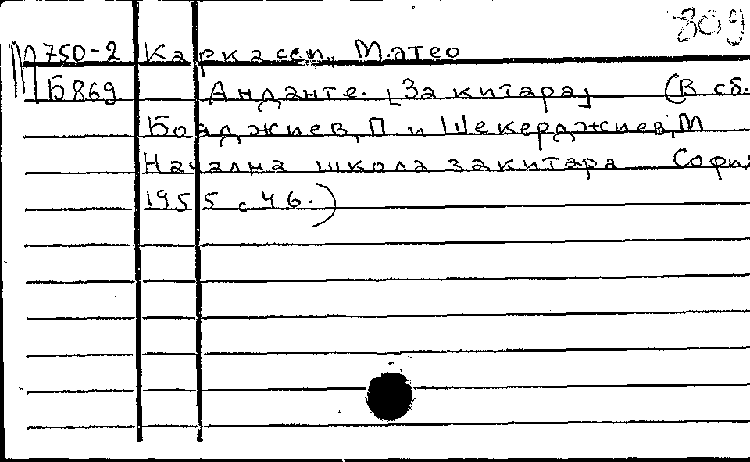 809
М750-2 Каркаси, Матео
Б869 Анданте. [За китара] (В сб.
Бояджиев, П и Шекерджиев, М
Начална школа за китара София
1955 с. 46.)